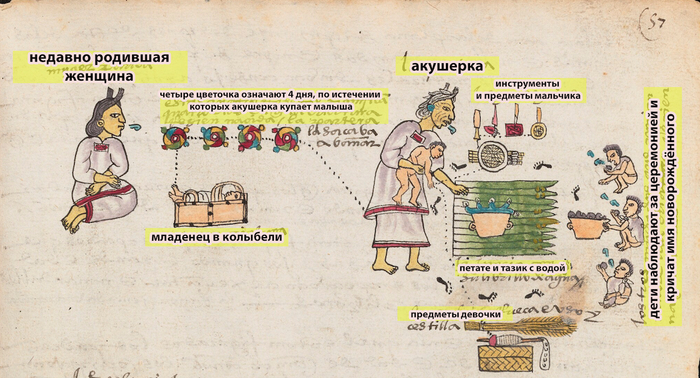 57
недавно родившая
женщина
акушерка
четыре цветочка означают 4 дня, по истечении
которых акушерка купает малыша
инструменты
и предметы мальчика
la sacaba
младенец в колыбели
петате и тазик с водой
предметы девочки
cestilla
дети наблюдают за церемонией и
кричат имя новорождённого